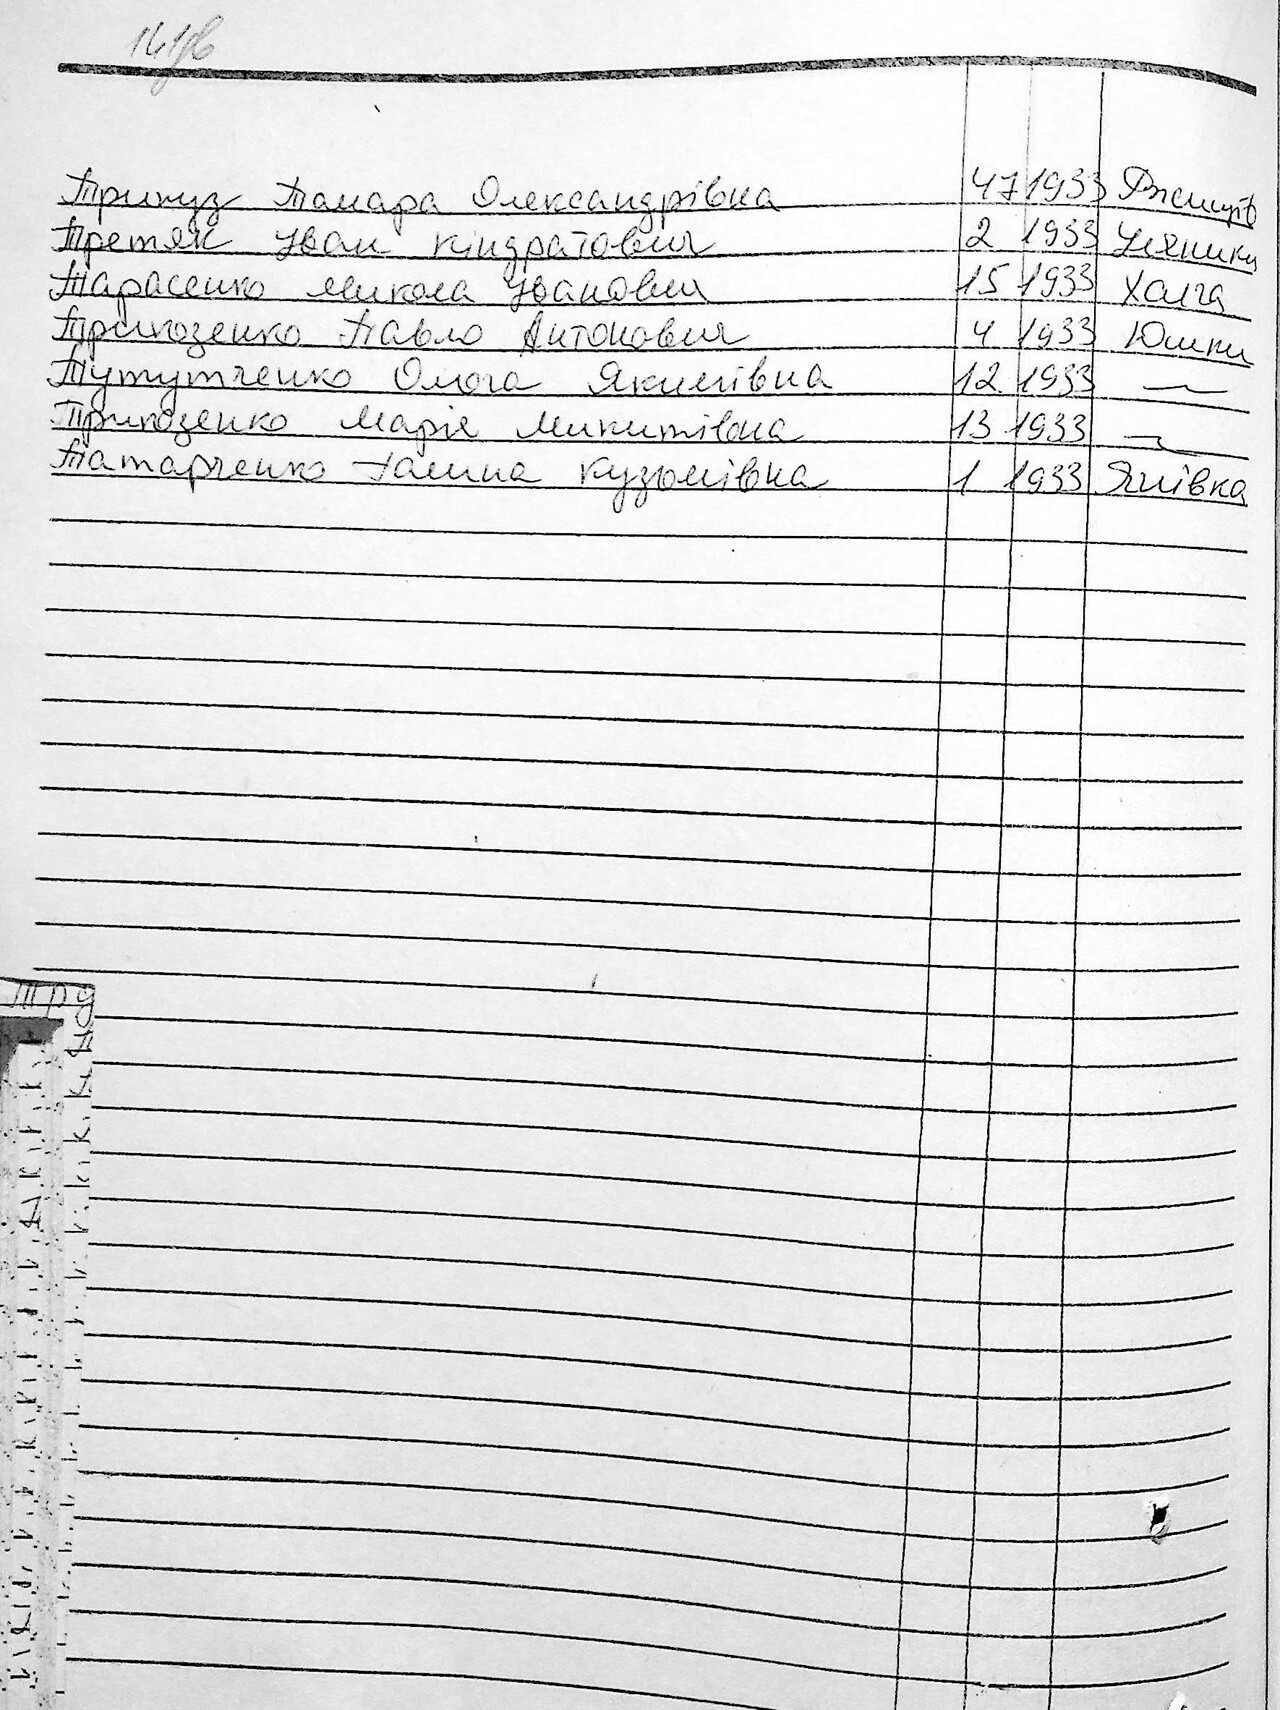 Тримуз Тамара Олександрівна 47 1933 Ржищів
Третяк Іван Кіндратович 2 1933 Уляники
Тарасенко Микола Іванович 15 1933 Халча
Павло Антонович 4 1933 Юшки
Тутутченко Ольга Якимівна 12 1933 —"—
Марія Микитівна 13 1933 —"—
Татарченко Галина Кузьмівна 1 1933